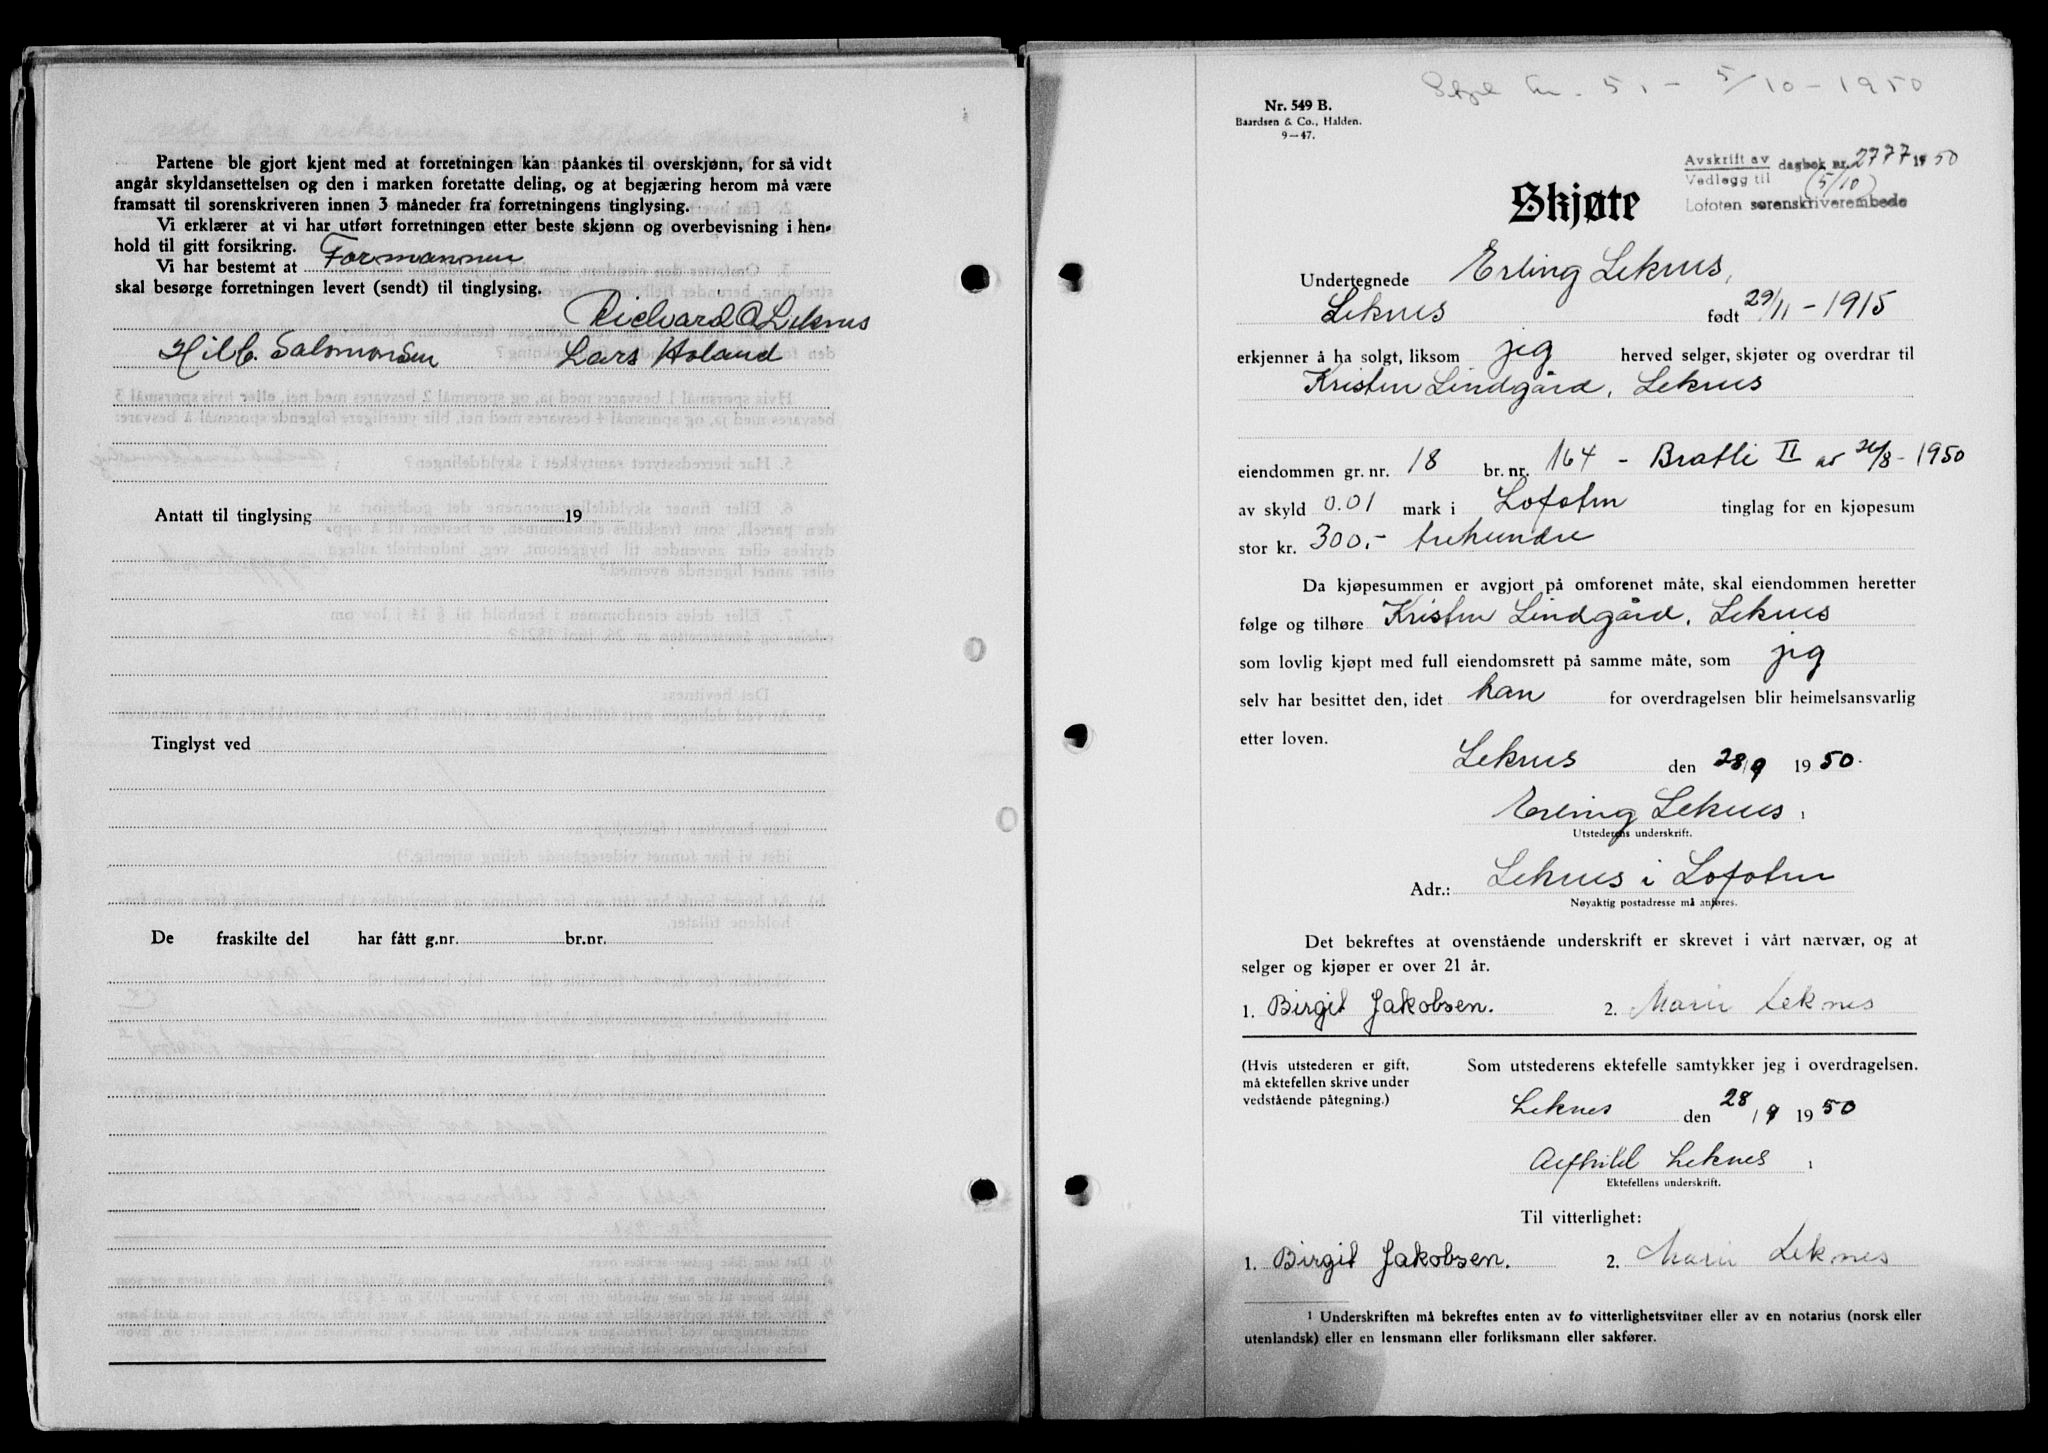 Partene ble gjort kjent med at forretningen kan påankes til overskjønn, for så vidt
angår skyldansettelsen og den i marken foretatte deling, og at begjæring herom må være
framsatt til sorenskriveren innen 3 måneder fra forretningens tinglysing.
Vi erklærer at vi har utført forretningen etter beste skjønn og overbevisning i hen-
hold til gitt forsikring.
Vi har bestemt at Formannen
skal besørge forretningen levert (sendt) til tinglysing.
Richard Leknes
Hilb. Salomonsen Lars Holand
Antatt til tinglysing 19
Tinglyst ved
De fraskilte del har fått g.nr. br.nr.
5.- 5/10-1950
Nr. 549 B.
Baardsen & Co., Halden.
9-47.
Avskrift av dagbok nr. 2777 1950
Vedlegg til (5/10)
Lofoten sorenskriverembede
Skjøte
Undertegnede Erling Leknes,
Leknes født 29/11-1915
erkjenner å ha solgt, liksom jeg herved selger, skjøter og overdrar til
Kristen Lindgård, Leknes
eiendommen gr. nr. 18 br. nr. 164 - Bratli II av 26/8-1950
av skyld 0.01 mark i Lofoten tinglag for en kjøpesum
stor kr. 300,- trehundre
Da kjøpesummen er avgjort på omforenet måte, skal eiendommen heretter
følge og tilhøre Kristen Lindgård, Leknes
som lovlig kjøpt med full eiendomsrett på samme måte, som jeg
selv har besittet den, idet han for overdragelsen blir heimelsansvarlig
etter loven.
Leknes den 28/9 1950.
Erling Leknes,
Utstederens underskrift.
Adr.: Leknes i Lofoten
Nøyaktig postadresse må anføres.
Det bekreftes at ovenstående underskrift er skrevet i vårt nærvær, og at
selger og kjøper er over 21 år.
1. Birgit Jakobsen. 2. Marie Leknes
(Hvis utstederen er gift, Som utstederens ektefelle samtykker jeg i overdragelsen.
må ektefellen skrive under
vedstående påtegning.)
Leknes den 28/9 1950
Leknes,
Ektefellens underskrift.
Til vitterlighet:
1. Birgit Jakobsen. 2. Marie Leknes
¹ Underskriften må bekreftes enten av to vitterlighetsvitner eller av en notarius (norsk eller
utenlandsk) eller en lensmann eller forliksmann eller sakfører.